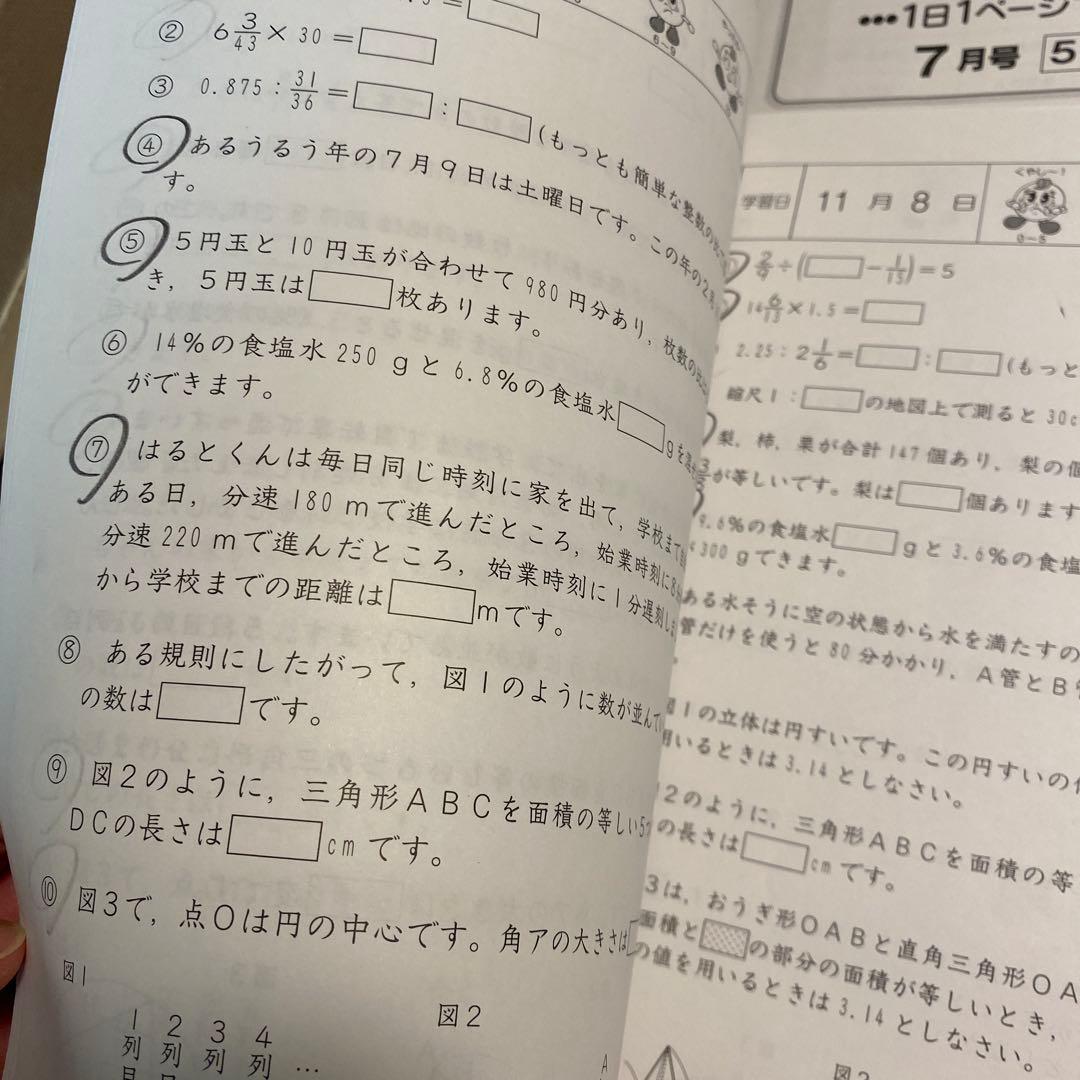 ② 6 3/43 × 30 = □
③ 0.875 : 31/36 = □ : □ (もっとも簡単な整数の
④ あるうるう年の7月9日は土曜日です。この年の2
す。
⑤ 5円玉と10円玉が合わせて980円分あり，枚数の
き，5円玉は□枚あります。
⑥ 14%の食塩水250gと6.8%の食塩水□gを
ができます。
⑦ はるとくんは毎日同じ時刻に家を出て，学校まで
ある日，分速180mで進んだところ，始業時刻に8
分速220mで進んだところ，始業時刻に1分遅刻し
から学校までの距離は□mです。
⑧ ある規則にしたがって，図1のように数が並んで
の数は□です。
⑨ 図2のように，三角形ABCを面積の等しい5
DCの長さは□cmです。
⑩ 図3で，点Oは円の中心です。角アの大きさは
図1
図2
1 2 3 4
列 列 列 列 …
目
A
6〜9
•••1日1ページ
7月号 5
学習日 11月8日
くやし〜!
0〜5
2/9 ÷ (□ − 1/15) = 5
14 6/13 × 1.5 = □
2.25 : 2 1/6 = □ : □ (もっと
縮尺1 : □の地図上で測ると30c
梨，柿，栗が合計147個あり，梨の個
が等しいです。梨は□個あります
9.6%の食塩水□gと3.6%の食塩
300gできます。
ある水そうに空の状態から水を満たすの
管だけを使うと80分かかり，A管とB
図1の立体は円すいです。この円すいの
用いるときは3.14としなさい。
2のように，三角形ABCを面積の等
の長さは□cmです。
3は，おうぎ形OABと直角三角形OA
面積と□の部分の面積が等しいとき，
の値を用いるときは3.14としなさい。
図2